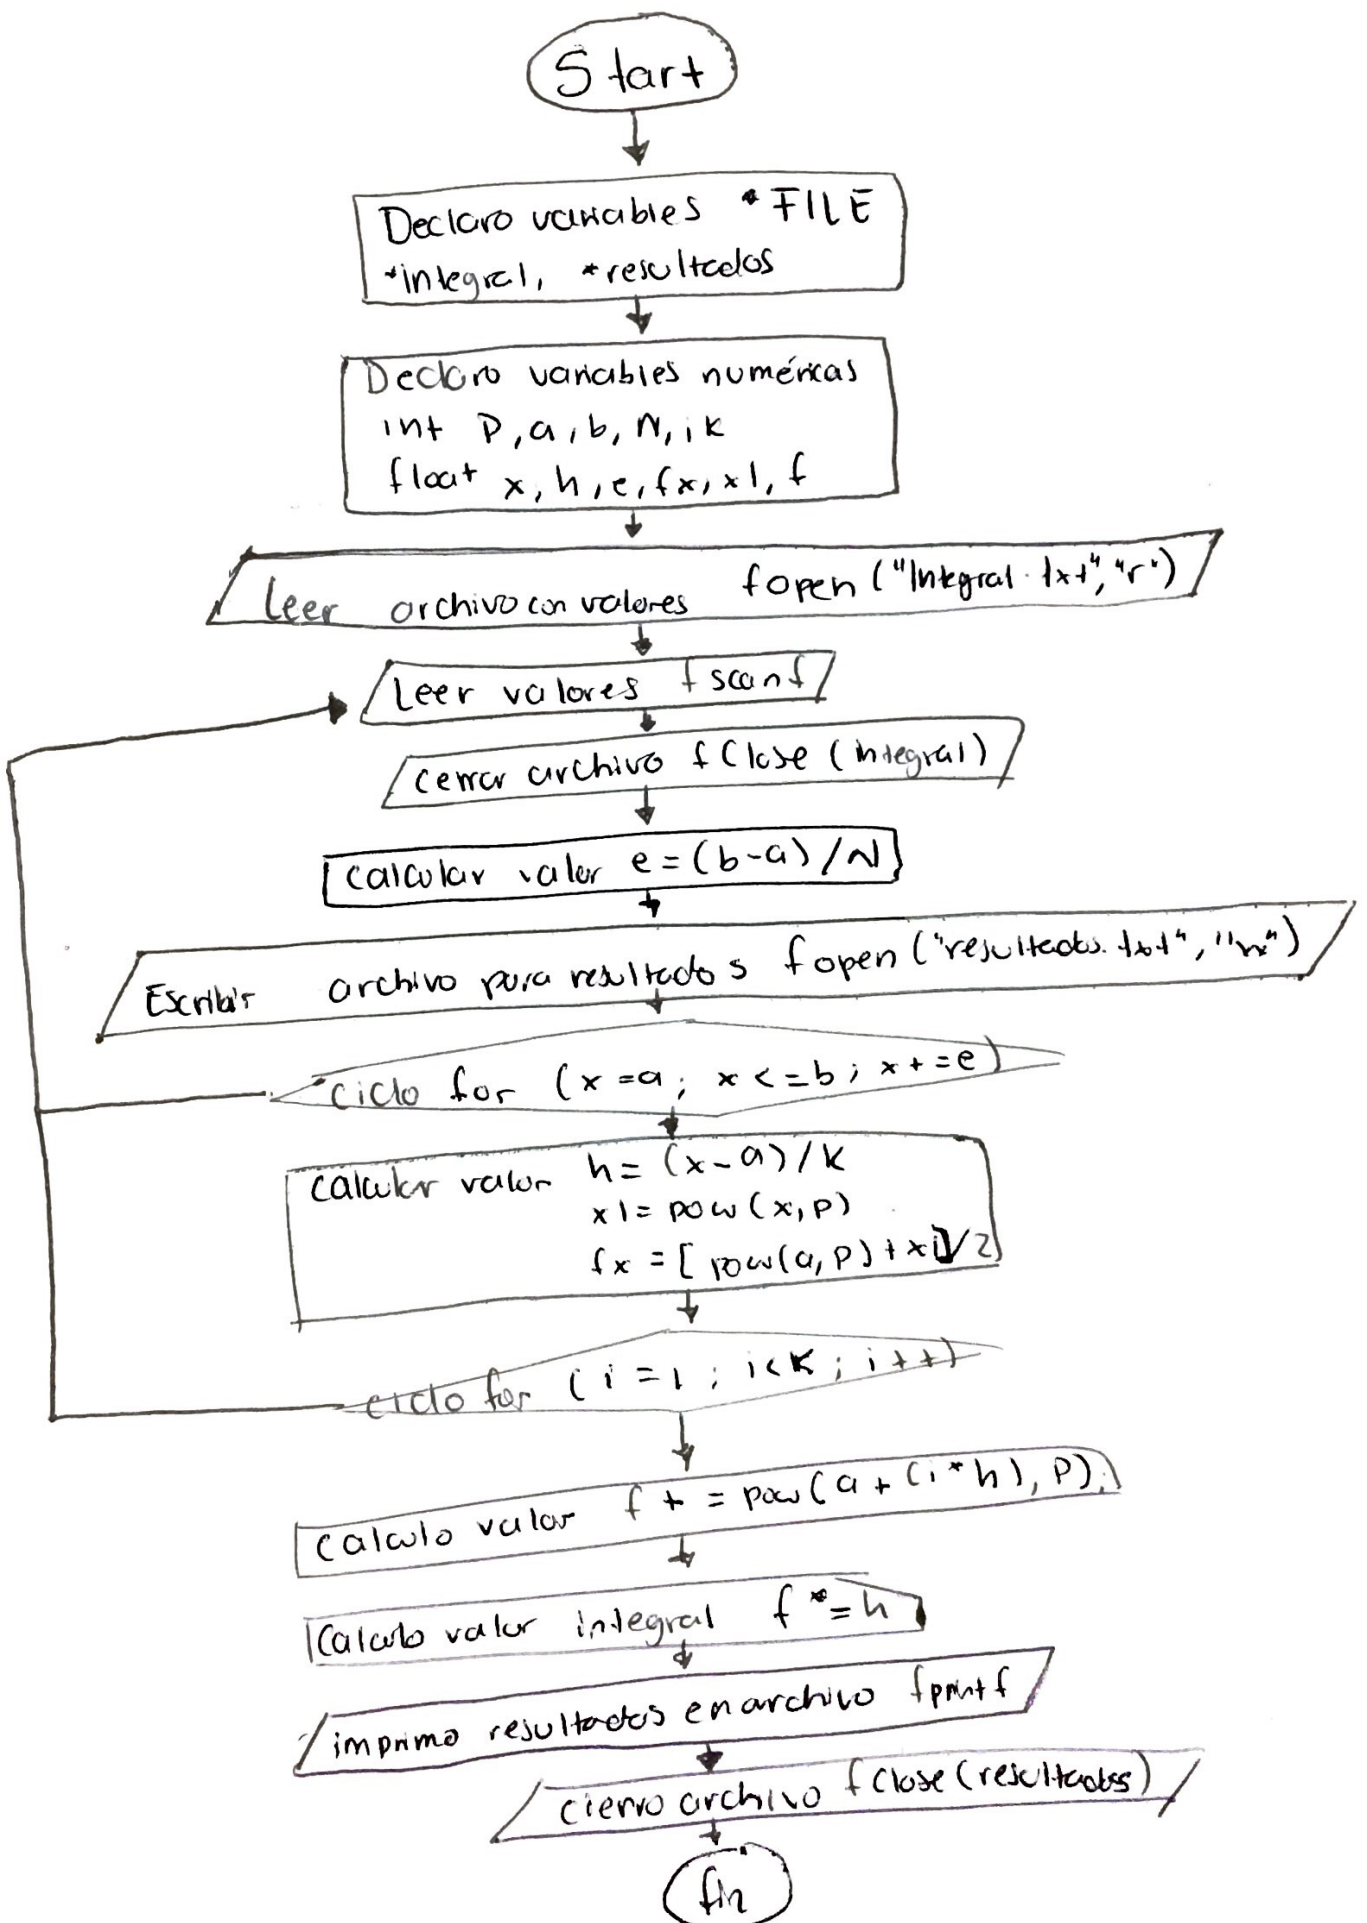 Start
Declaro variables *FILE
*integral, *resultados
Declaro variables numéricas
int P, a, b, N, i k
float x, h, e, fx, x1, f
Leer archivo con valores fopen ("Integral.txt", "r")
Leer valores fscanf
cerrar archivo fClose (integral)
calcular valor e = (b-a) / N
Escribir archivo para resultados fopen ("resultados.txt", "w")
ciclo for (x = a; x <= b; x += e)
calcular valor h = (x-a) / k
x1 = pow (x, p)
fx = [pow(a, p) + x1]/2
ciclo for (i = 1; i < k; i++)
calculo valor f += pow (a + (i * h), P);
Calculo valor integral f *= h
imprimo resultados en archivo fprintf
cierro archivo fClose (resultados)
fin